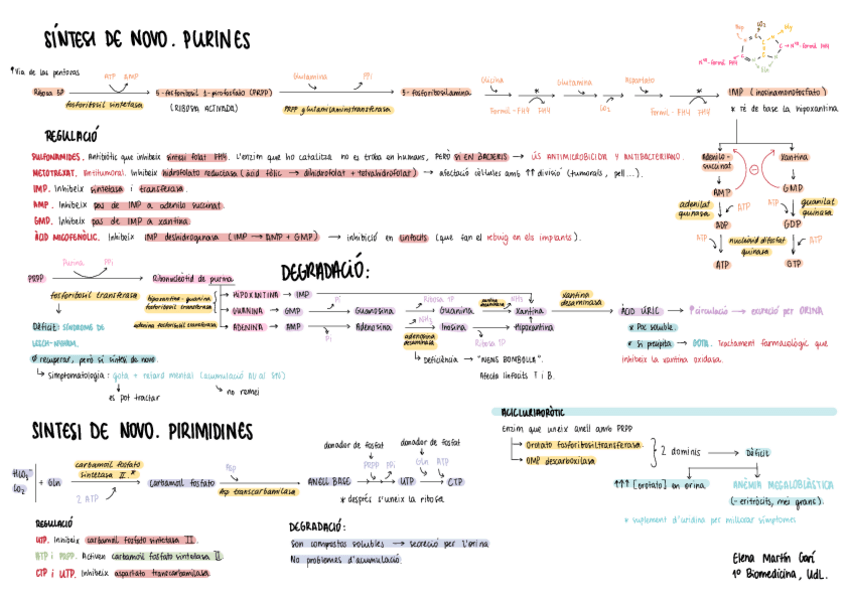 SÍNTESI DE NOVO. PURINES
↑Via de las pentosas
Ribosa 5P
ATP AMP
fosforibosil sintetasa
5-fosforibosil 1-pirofosfato (PRPP)
(RIBOSA ACTIVADA)
Glutamina PPi
PRPP glutamilaminotransferasa
5-fosforibosilamina
Glicina
Formil-FH4 FH4
Glutamina
CO2
Aspartato
Formil-FH4 FH4
IMP (inosinamonofosfato)
* té de base la hipoxantina
Asp CO2 Gly
N10-formil FH4
N10-formil FH4
Gln
REGULACIÓ
SULFONAMIDES. Antibiòtic que inhibeix síntesi folat FH4. L'enzim que ho catalitza no es troba en humans, PERÒ SI EN BACTERIS → ÚS ANTIMICROBICIDA Y ANTIBACTERIANO.
METOTREXAT. Antitumoral. Inhibeix hidrofolato reductasa (àcid fòlic → dihidrofolat + tetrahidrofolat) → afectació cèl·lules amb ↑↑ divisió (tumorals, pell...).
IMP. Inhibeix sintetasa i transferasa.
AMP. Inhibeix pas de IMP a adenilo succinat.
GMP. Inhibeix pas de IMP a xantina
ÀCID MICOFENÒLIC. Inhibeix IMP deshidrogenasa (IMP → AMP + GMP) → inhibició en limfocits (que fan el rebuig en els implants).
Adenilo-succinat
Xantina
AMP
GMP
adenilat quinasa
ATP
ATP
guanilat quinasa
ADP
GDP
ATP
nucleòsid difosfat quinasa
ATP
ATP
GTP
DEGRADACIÓ:
PRPP
Purina PPi
Ribonucleòtid de purina
fosforibosil transferasa
hipoxantina-guanina fosforibosil transferasa
adenina fosforibosil transferasa
HIPOXANTINA → IMP
GUANINA → GMP
ADENINA → AMP
Pi
Guanosina
Ribosa 1P
Guanina
guanina desaminasa
NH3
Xantina
xantina desaminasa
Pi
Adenosina
NH3
adenosina desaminasa
Inosina
Ribosa 1P
Hipoxantina
ÀCID ÚRIC → ↑circulació → excreció per ORINA
* Poc soluble.
* Si precipita → GOTA. Tractament farmacològic que
inhibeix la xantina oxidasa.
Deficiència → "NENS BOMBOLLA".
Afecta limfocits T i B.
Dèficit: SÍNDROME DE
LESCH-NYHAN.
Ø recuperar, però sí síntesi de novo.
Simptomatologia: gota + retard mental (acumulació AU al SNS)
es pot tractar
no remei
SINTESI DE NOVO. PIRIMIDINES
HCO3-
CO2
+ Gln
carbamoil fosfato sintetasa II. *
2 ATP
Carbamoil fosfato
Asp
Asp transcarbamilasa
ANELL BASE
donador de fosfat
PRPP PPi
UTP
donador de fosfat
Gln ATP
CTP
* després s'uneix la ribosa
REGULACIÓ
UTP. Inhibeix carbamoil fosfato sintetasa II.
ATP i PRPP. Activen carbamoil fosfato sintetasa II.
CTP i UTP. Inhibeix aspartato transcarbamilasa
DEGRADACIÓ:
Son compostos solubles → secreció per l'orina
No problemes d'acumulació
ACICLURIAORÒTIC
Enzim que uneix anell amb PRPP
Orotato fosforibosiltransferasa.
OMP descarboxilasa
2 dominis → Dèficit
↑↑↑ [orotato] en orina
ANÈMIA MEGALOBLÀSTICA
(- eritròcits, més grans).
* suplement d'uridina per millorar símptomes
Elena Martín Garí
1º Biomedicina, UdL.